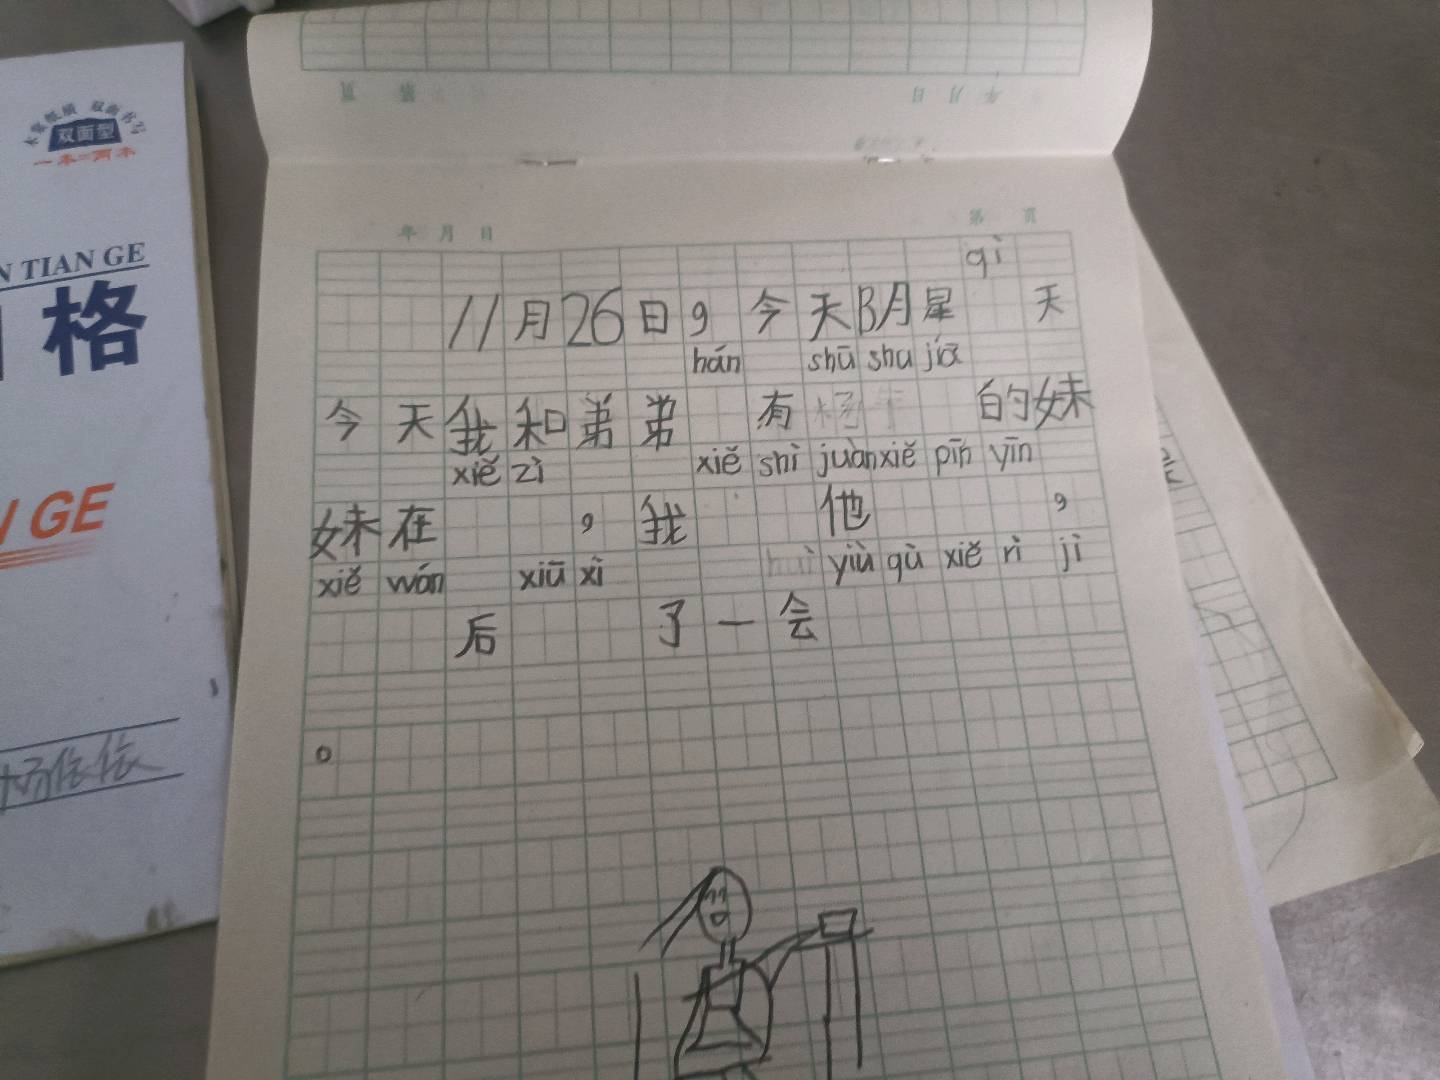 页 第 日 月 年
木浆纸质 双面书写
双面型
一本=两本
N TIAN GE
格
N GE
杨依依
年 月 日 第 页
qì
11月26日，今天阴星 天
hán shū shu jiā
今天我和弟弟 有 的妹
xiě zì xiě shì juàn xiě pīn yīn
妹在 ，我 他 ，
xiě wán xiū xi huì yiù qù xiě rì jì
后 了一会
。